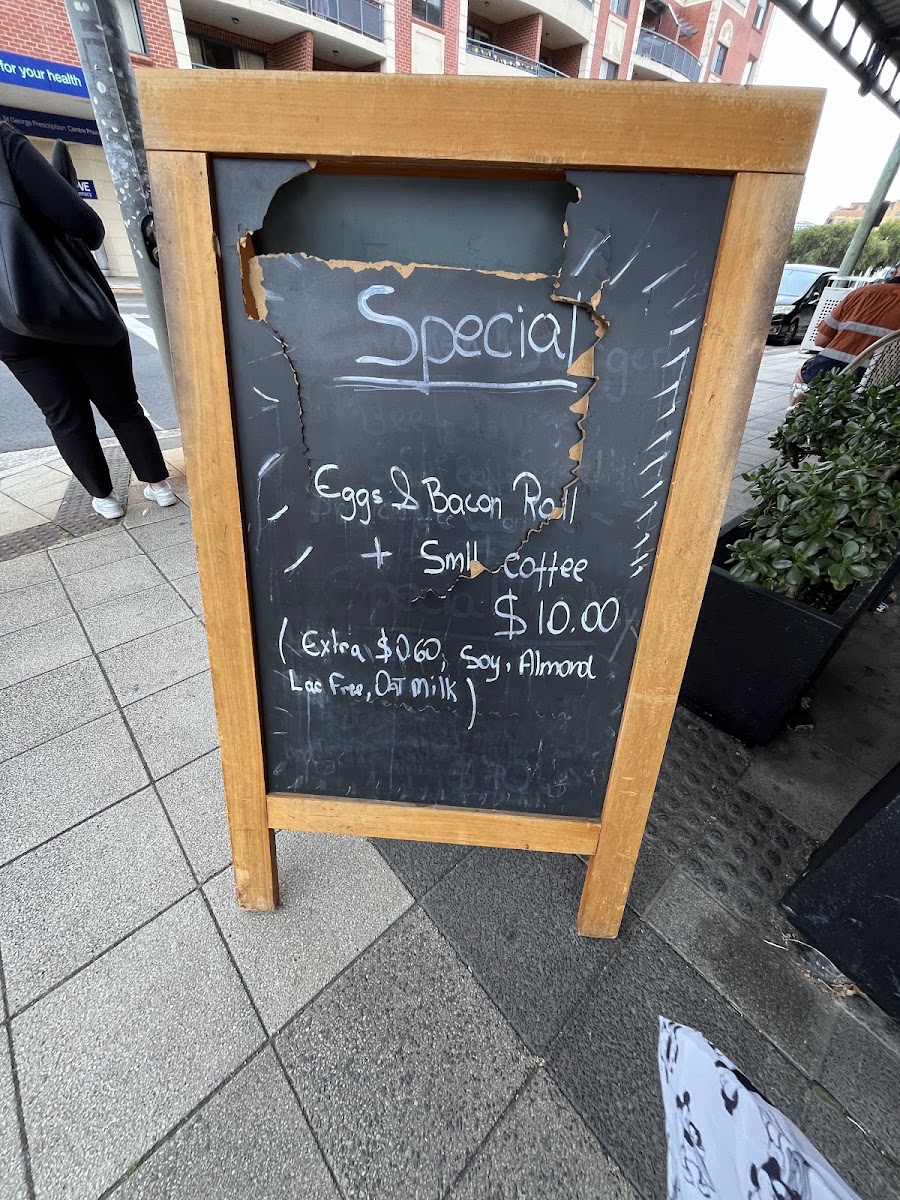 for your health
St George Prescription Centre
Special
Eggs & Bacon Roll
+ Smll coffee
$10.00
( Extra $0.60, Soy, Almond
Lac Free, OaT Milk )